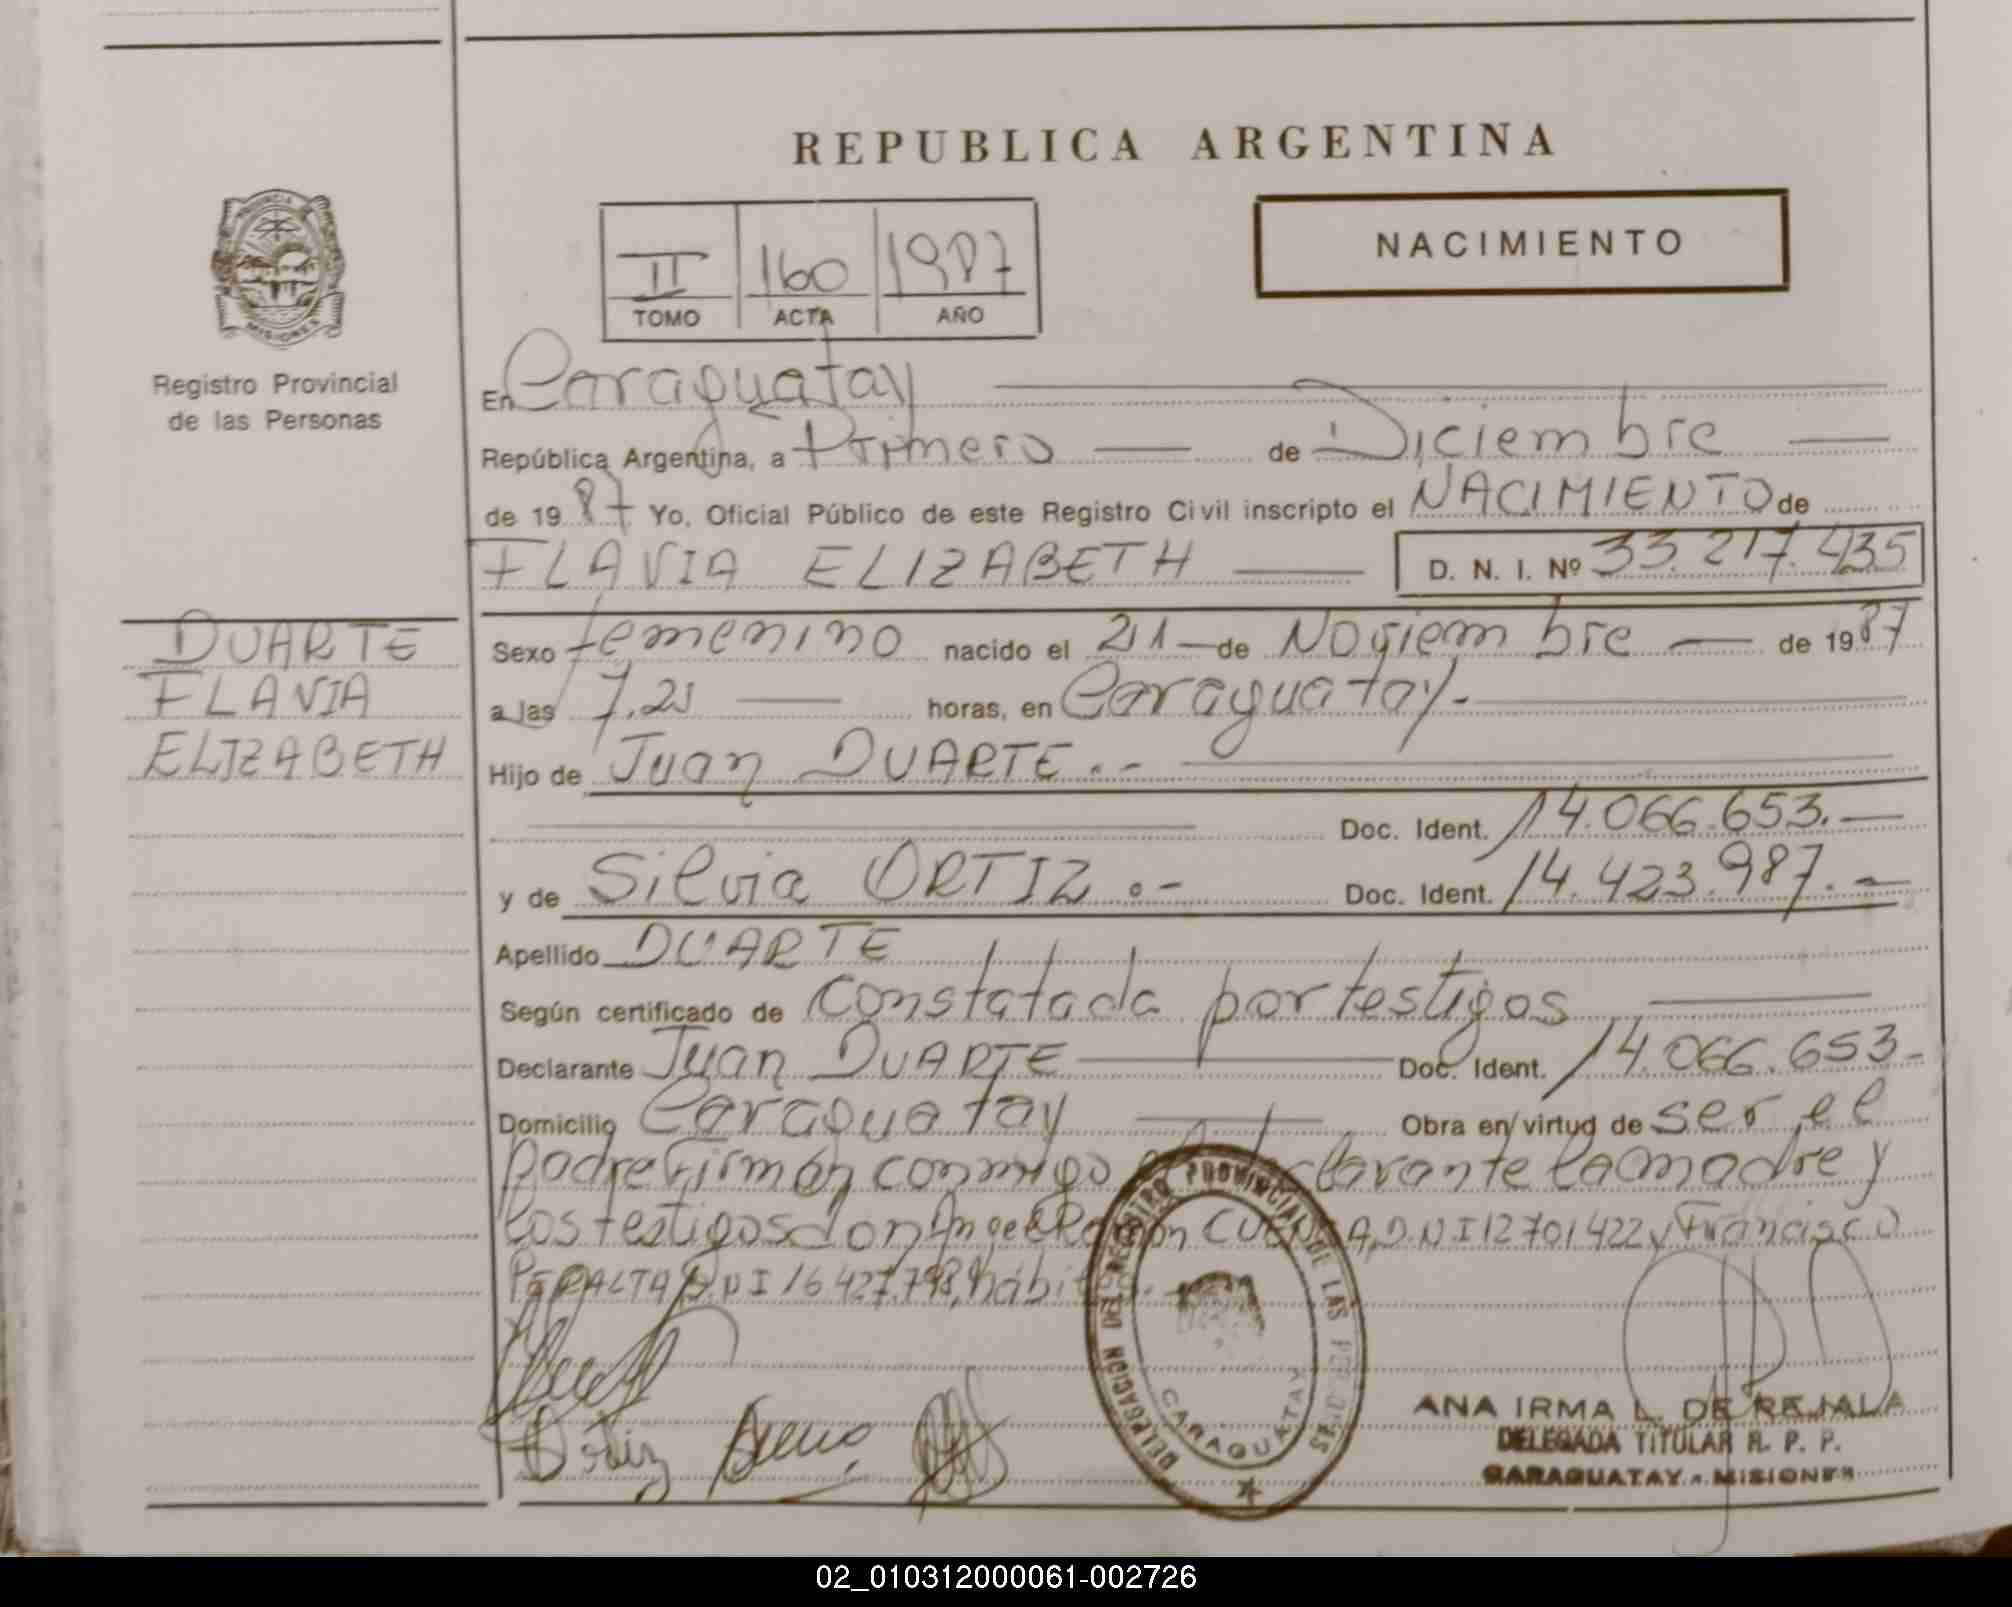 REPUBLICA ARGENTINA
PROVINCIA
MISIONES
Registro Provincial
de las Personas
II 160 1987
TOMO ACTA AÑO
NACIMIENTO
En Caraguatay
República Argentina, a Primero de Diciembre
de 1987 Yo, Oficial Público de este Registro Civil inscripto el NACIMIENTO de
FLAVIA ELIZABETH D. N. I. Nº 33.217.435
DUARTE
FLAVIA
ELIZABETH
Sexo femenino nacido el 21 de Noviembre de 1987
a las 7,25 horas, en Caraguatay.-
Hijo de Juan DUARTE.-
Doc. Ident. 14.066.653.-
y de Silvia ORTIZ.- Doc. Ident. 14.423.987.-
Apellido DUARTE
Según certificado de Constatada por testigos
Declarante Juan DUARTE Doc. Ident. 14.066.653-
Domicilio Caraguatay Obra en virtud de ser el
padre Firman conmigo la madre y
los testigos don Angel Ramón D.N.I 12701422 y Francisco
PERALTA D.N.I 16.427.798,
Ortiz
DELEGACION DEL REGISTRO PROVINCIAL DE LAS PERSONAS
CARAGUATAY
ANA IRMA L. DE REJALA
DELEGADA TITULAR R. P. P.
CARAGUATAY - MISIONES
02_010312000061-002726